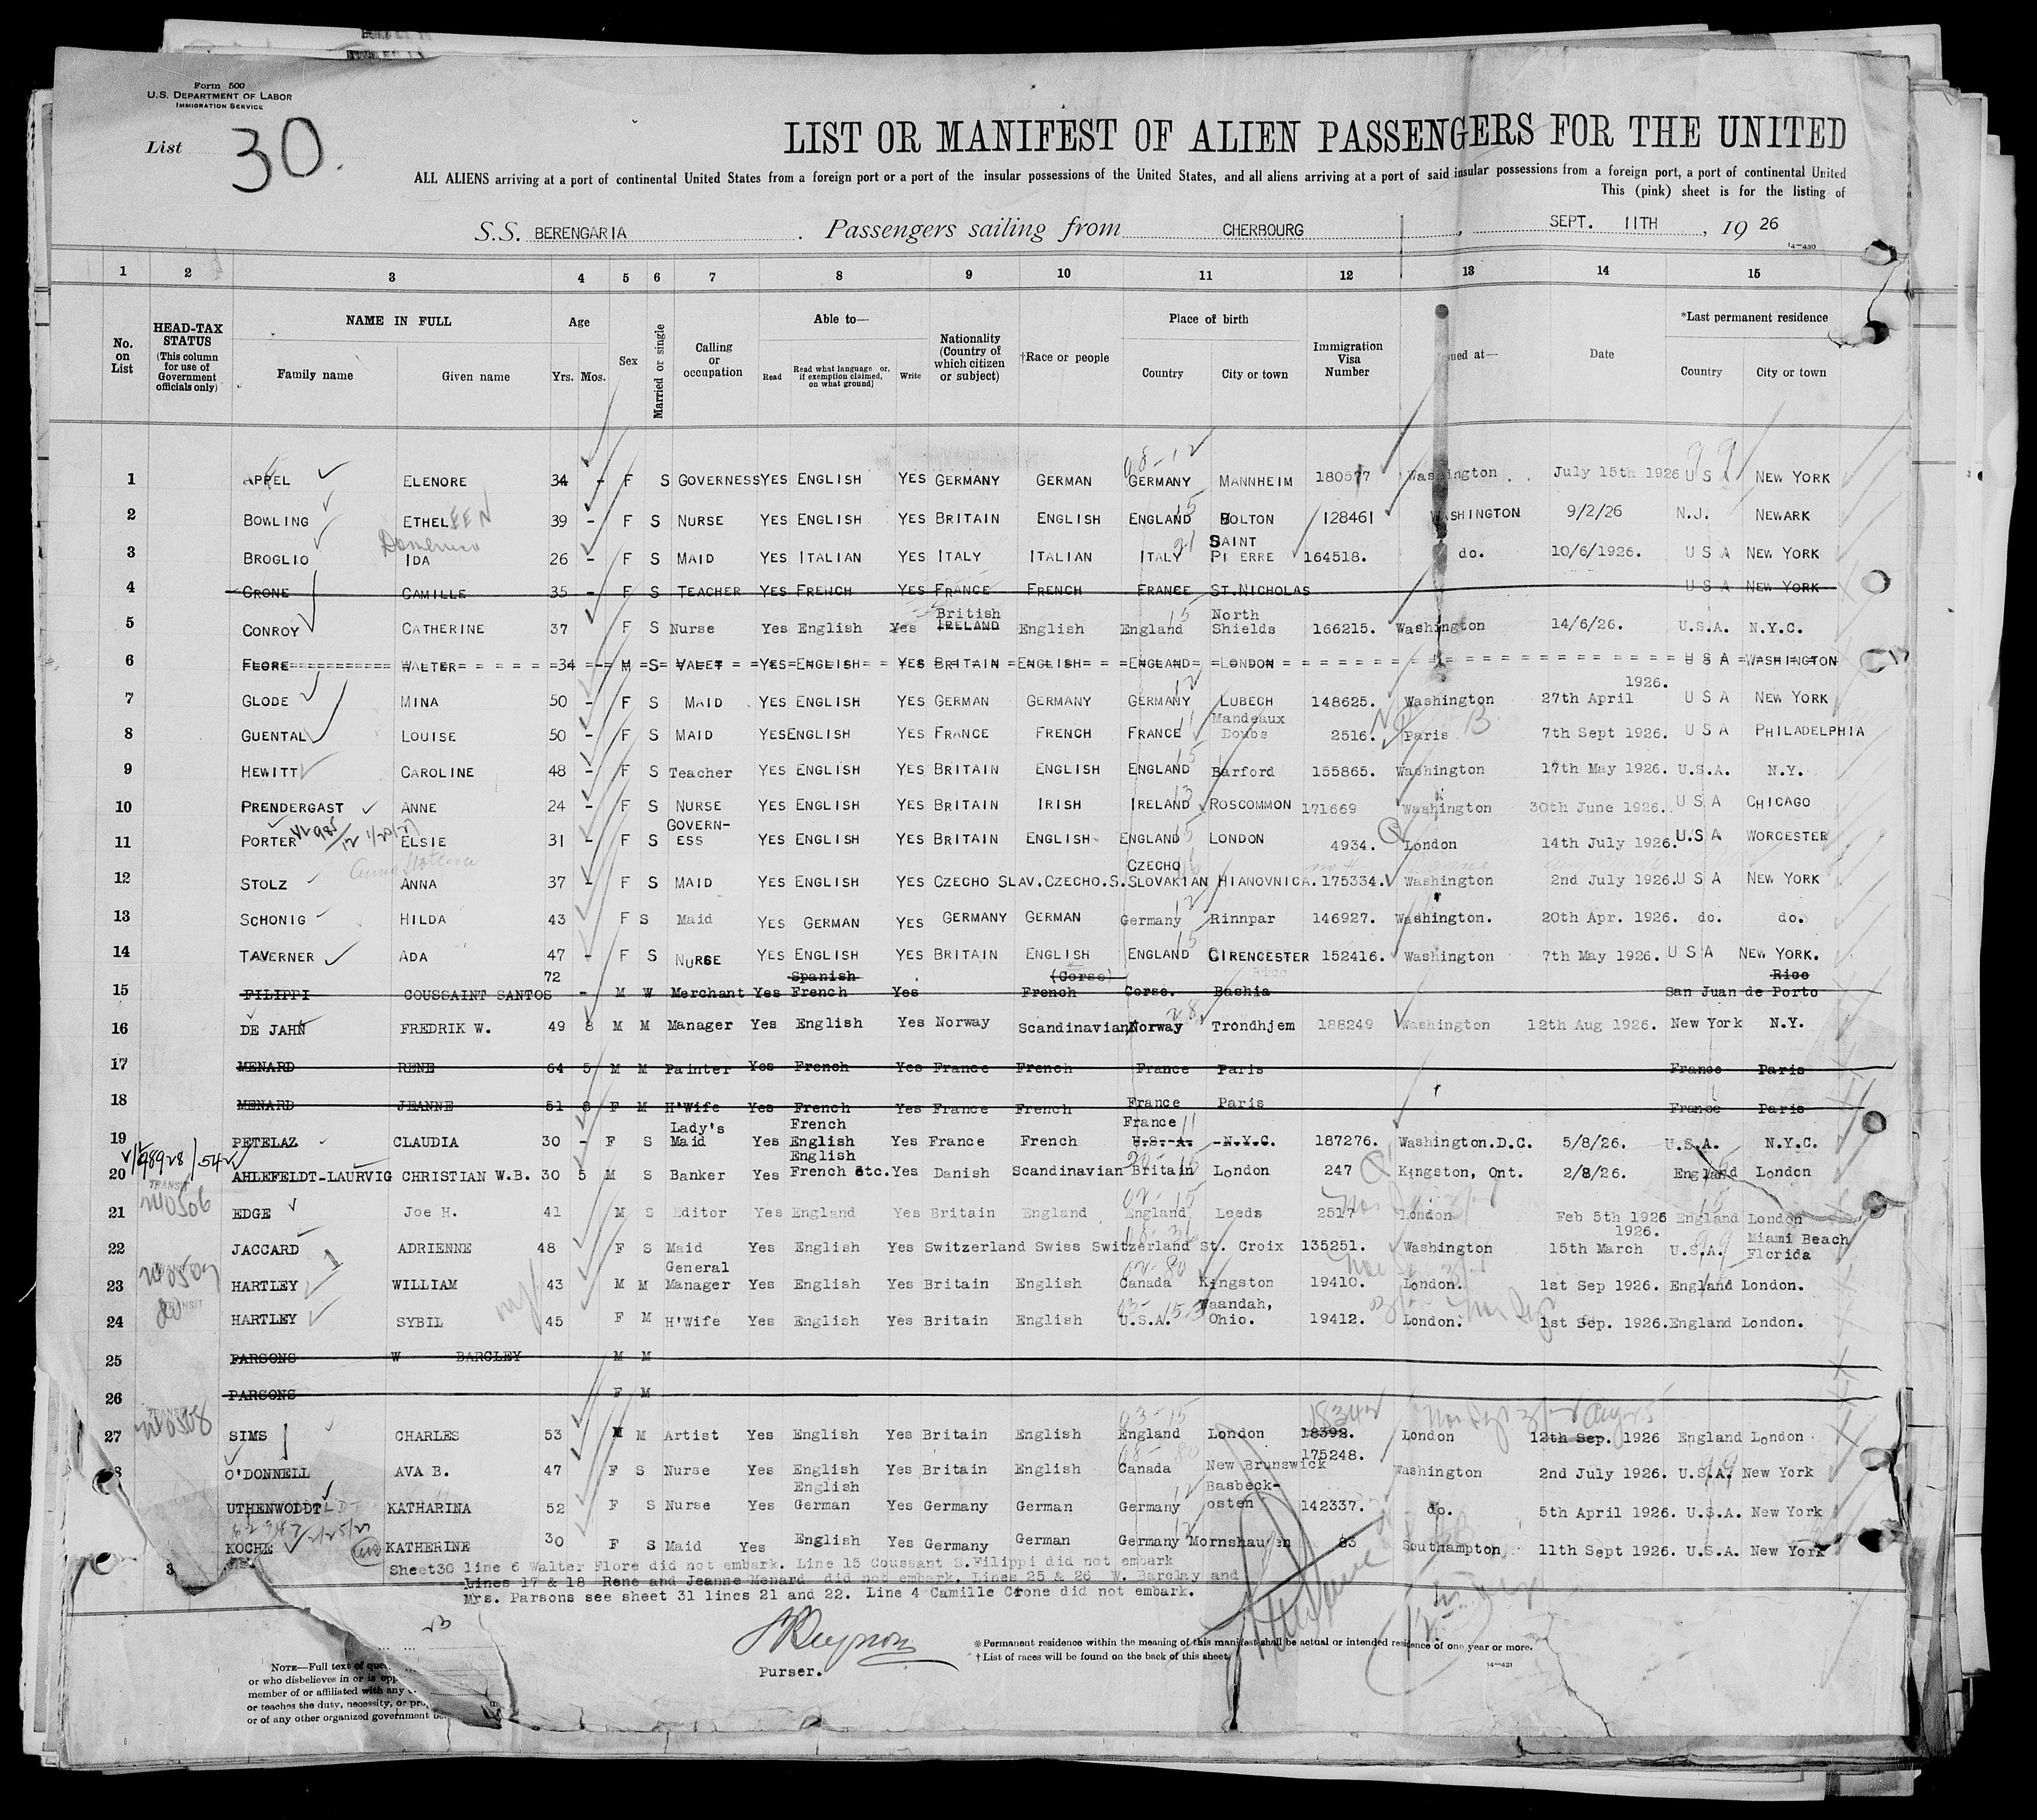 Form 500
U.S. DEPARTMENT OF LABOR
IMMIGRATION SERVICE
List 30.
LIST OR MANIFEST OF ALIEN PASSENGERS FOR THE UNITED
ALL ALIENS arriving at a port of continental United States from a foreign port or a port of the insular possessions of the United States, and all aliens arriving at a port of said insular possessions from a foreign port, a port of continental United
This (pink) sheet is for the listing of
S.S. BERENGARIA. Passengers sailing from CHERBOURG, SEPT. 11TH, 1926
14-430
1 2 3 4 5 6 7 8 9 10 11 12 13 14 15
No. on List HEAD-TAX STATUS (This column for use of Government officials only) NAME IN FULL Family name Given name Age Yrs. Mos. Sex Married or single Calling or occupation Able to— Read Read what language or, if exemption claimed, on what ground] Write Nationality (Country of which citizen or subject) †Race or people Place of birth Country City or town Immigration Visa Number ued at— Date *Last permanent residence Country City or town
1 APPEL ELENORE 34 - F S GOVERNESS YES ENGLISH YES GERMANY GERMAN 08-12 GERMANY MANNHEIM 180577 Washington July 15th 1926 USA NEW YORK
2 BOWLING ETHELEEN 39 - F S NURSE YES ENGLISH YES BRITAIN ENGLISH ENGLAND 15 BOLTON 128461 WASHINGTON 9/2/26 N.J. NEWARK
3 BROGLIO Domenica IDA 26 - F S MAID YES ITALIAN YES ITALY ITALIAN ITALY 21 SAINT PIERRE 164518. do. 10/6/1926. USA NEW YORK
4 CRONE CAMILLE 35 - F S TEACHER YES FRENCH YES FRANCE FRENCH FRANCE ST.NICHOLAS USA NEW YORK
5 CONROY CATHERINE 37 F S Nurse Yes English Yes British IRELAND English England 15 North Shields 166215. Washington 14/6/26. U.S.A. N.Y.C.
6 FLORE WALTER 34 - M S VALET YES ENGLISH YES BRITAIN ENGLISH ENGLAND LONDON USA WASHINGTON
7 GLODE MINA 50 - F S MAID YES ENGLISH YES GERMAN GERMANY GERMANY 12 LUBECH 148625. Washington 27th April 1926. USA NEW YORK
8 GUENTAL LOUISE 50 - F S MAID YES ENGLISH YES FRANCE FRENCH FRANCE 11 Mandeaux Doubs 2516. Paris 7th Sept 1926. USA PHILADELPHIA
9 HEWITT CAROLINE 48 - F S Teacher YES ENGLISH YES BRITAIN ENGLISH ENGLAND 15 Barford 155865. Washington 17th May 1926. U.S.A. N.Y.
10 PRENDERGAST ANNE 24 - F S NURSE YES ENGLISH YES BRITAIN IRISH IRELAND 13 ROSCOMMON 171669 Washington 30th June 1926. USA CHICAGO
11 PORTER ELSIE 31 - F S GOVERN-ESS YES ENGLISH YES BRITAIN ENGLISH ENGLAND 15 LONDON 4934. London 14th July 1926. U.S.A WORCESTER
12 STOLZ ANNA 37 - F S MAID YES ENGLISH YES CZECHO SLAV. CZECHO.S. CZECHO SLOVAKIAN HIANOVNICA. 175334. Washington 2nd July 1926. USA NEW YORK
13 SCHONIG HILDA 43 F S Maid YES GERMAN YES GERMANY GERMAN Germany 12 Rinnpar 146927. Washington. 20th Apr. 1926. do. do.
14 TAVERNER ADA 47 - F S NURSE YES ENGLISH YES BRITAIN ENGLISH ENGLAND 15 CIRENCESTER 152416. Washington 7th May 1926. USA NEW YORK.
15 FILIPPI COUSSAINT SANTOS 72 - M W Merchant Yes Spanish French Yes (Corse) French Corse. Bashia San Juan de Porto Rico
16 DE JAHN FREDRIK W. 49 8 M M Manager Yes English Yes Norway Scandinavian Norway 28 Trondhjem 188249 Washington 12th Aug 1926. New York N.Y.
17 MENARD RENE 64 5 M M Painter Yes French Yes France French France Paris France Paris
18 MENARD JEANNE 51 8 F M H'Wife Yes French Yes France French France Paris France Paris
19 PETELAZ CLAUDIA 30 - F S Lady's Maid Yes French English Yes France French France 11 U.S.A. N.Y.C. 187276. Washington.D.C. 5/8/26. U.S.A. N.Y.C.
20 AHLEFELDT-LAURVIG CHRISTIAN W.B. 30 5 M S Banker Yes English French etc. Yes Danish Scandinavian Britain London 247 Kingston, Ont. 2/8/26. England London
21 EDGE Joe H. 41 M S Editor Yes England Yes Britain England England 02-15 Leeds 2517 London Feb 5th 1926 England London
22 JACCARD ADRIENNE 48 F S Maid Yes English Yes Switzerland Swiss Switzerland St. Croix 135251. Washington 15th March 1926. U.S.A. Miami Beach Florida
23 HARTLEY WILLIAM 43 M M General Manager Yes English Yes Britain English Canada Kingston 19410. London. 1st Sep 1926. England London.
24 HARTLEY SYBIL 45 F M H'Wife Yes English Yes Britain English U.S.A. Waandah, Ohio. 19412. London. 1st Sep. 1926. England London.
25 PARSONS W BARCLEY M M
26 PARSONS F M
27 SIMS CHARLES 53 M M Artist Yes English Yes Britain English 03-15 England London 18342 18392. London 12th Sep. 1926 England London
8 O'DONNELL AVA B. 47 F S Nurse Yes English Yes Britain English Canada New Brunswick 175248. Washington 2nd July 1926. U.S.A. New York
UTHENWOLDT KATHARINA 52 F S Nurse Yes English German Yes Germany German Germany 12 Basbeck-osten 142337. do. 5th April 1926. U.S.A. New York
KOCHE KATHERINE 30 F S Maid Yes English Yes Germany German Germany 12 Mornshausen 83 Southampton 11th Sept 1926. U.S.A. New York
Sheet30 line 6 Walter Flore did not embark. Line 15 Coussant S.Filippi did not embark
Lines 17 & 18 Rene and Jeanne Menard did not embark. Lines 25 & 26 W. Barclay and
Mrs. Parsons see sheet 31 lines 21 and 22. Line 4 Camille Crone did not embark.
Purser.
* Permanent residence within the meaning of this manifest shall be actual or intended residence of one year or more.
† List of races will be found on the back of this sheet.
14-431
NOTE—Full text of que
or who disbelieves in or is opp
member of or affiliated with any
or teaches the duty, necessity, or pro
or of any other organized government